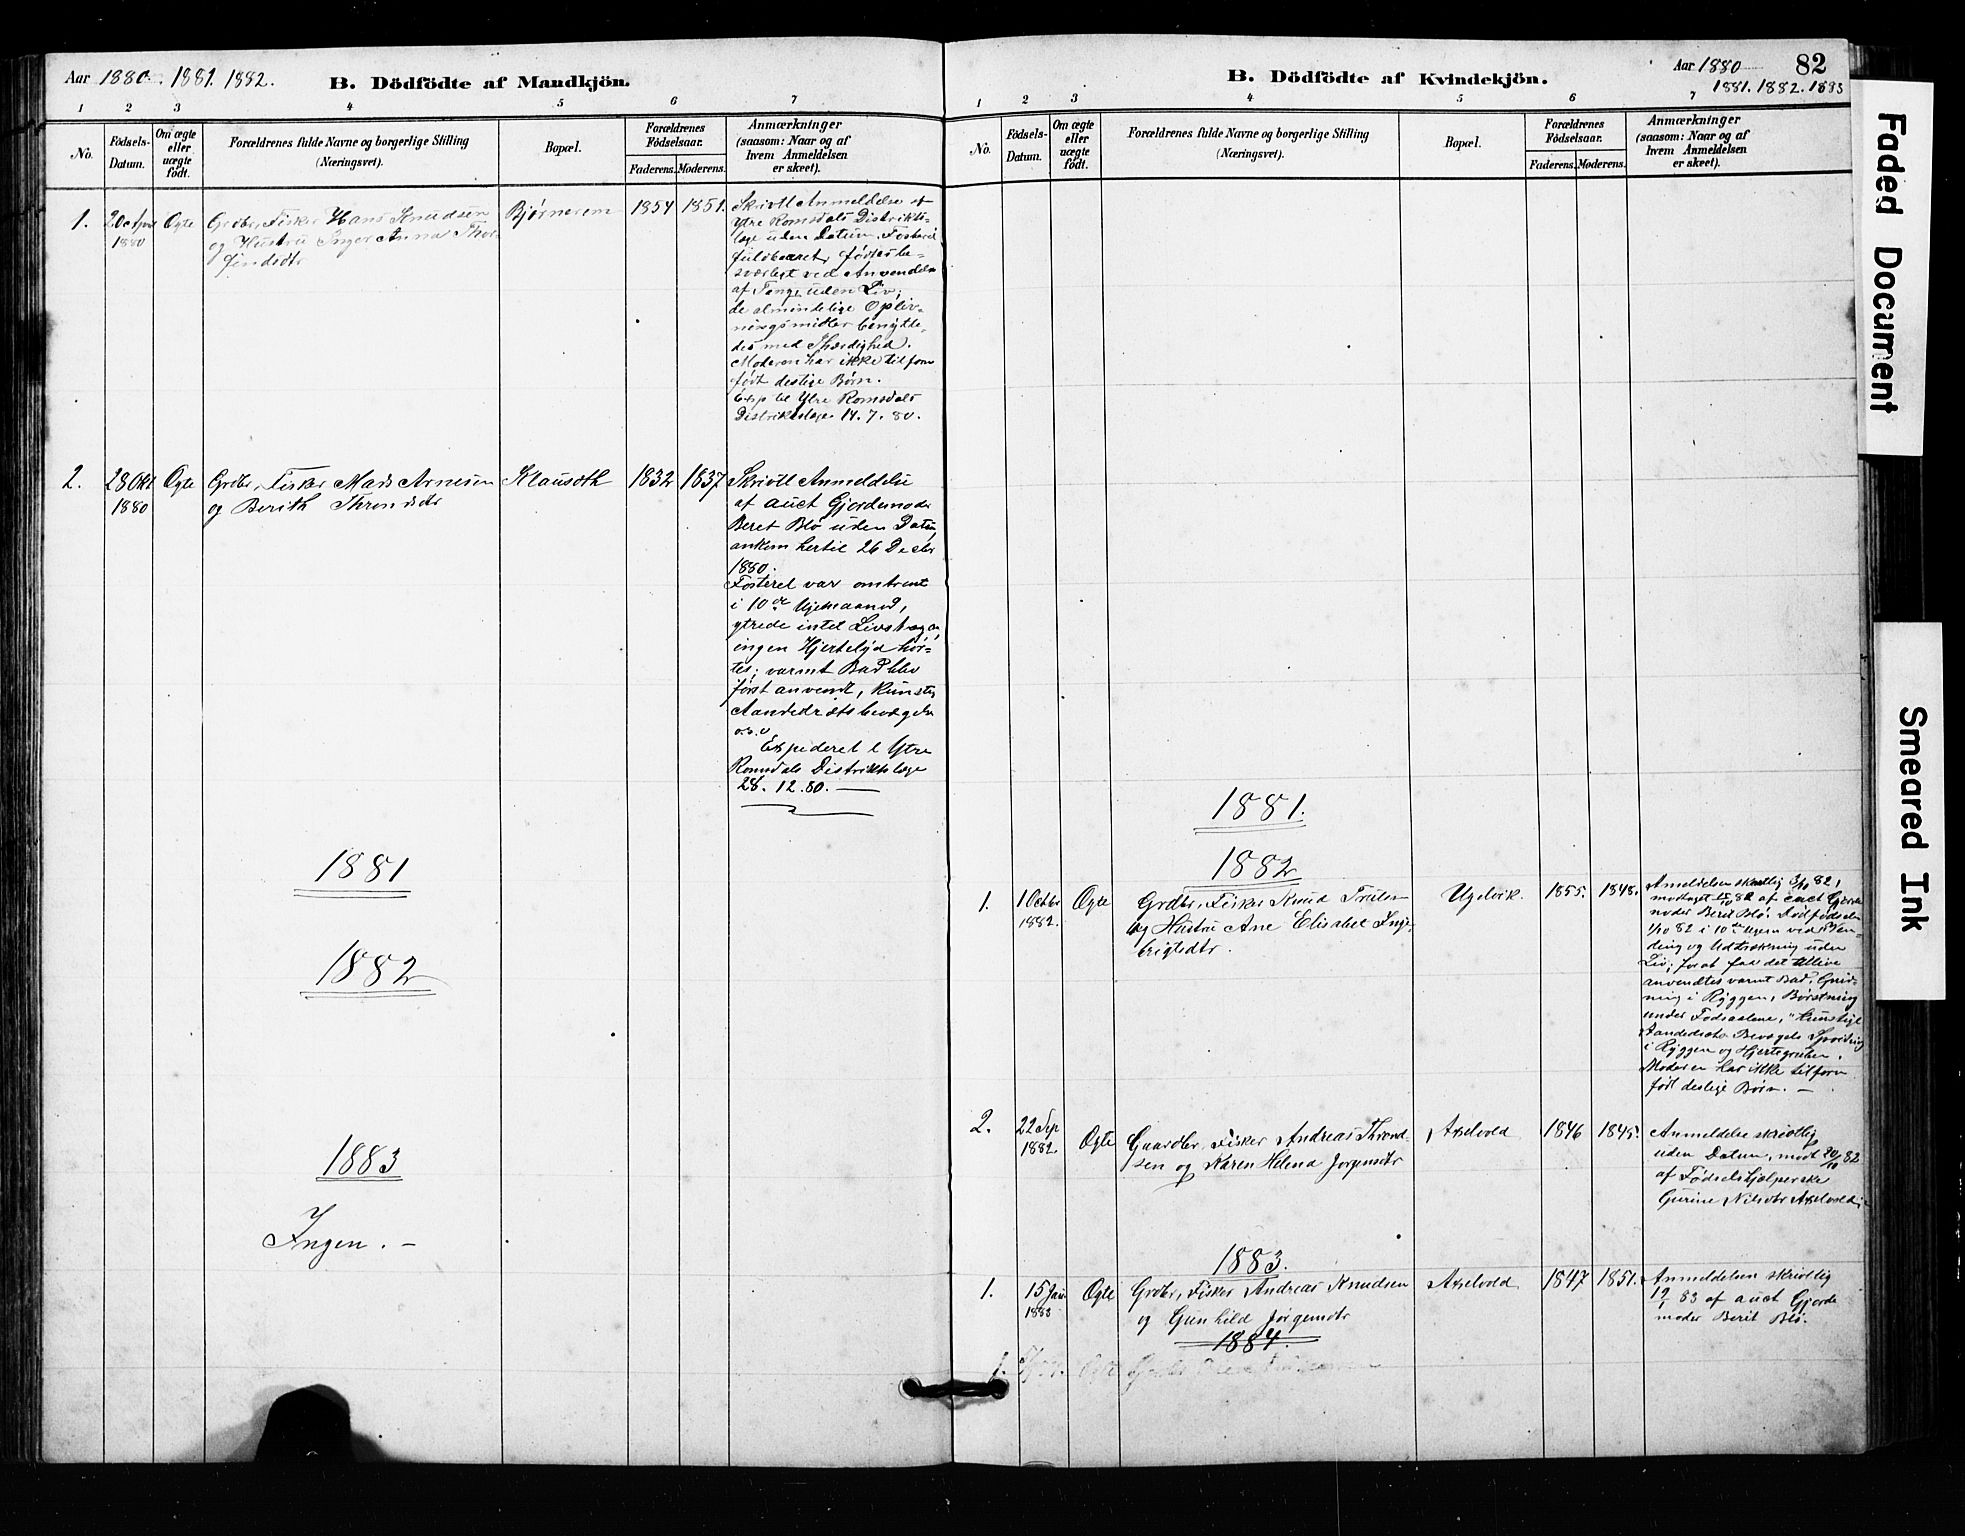 Aar 1880. 1881. 1882.
B. Dödfödte af Mandkjön.
1 2 3 4 5 6 7
No.
Fødsels-
Datum.
Om ægte
eller
uægte
født.
Forældrenes fulde Navne og borgerlige Stilling
(Næringsvei).
Bopæl.
Forældrenes
Fødselsaar.
Faderens. Moderens.
Anmærkninger
(saasom: Naar og af
hvem Anmeldelsen
er skeet).
1.
20 April
1880
Ægte
Grdbr, Fisker Hans Knudsen
og Hustru Inger Anna Thor-
findsdtr
Bjørnerem
1854
1851.
Skriftl Anmeldelse af
Ytre Romsdals Distrikts-
læge uden Datum. Fosteret
fuldbaaret, fødtes be-
sværligt ved Anvendelse
af Tang, uden Liv;
de almindelige Opliv-
ningsmidler benytte-
des med Ihærdighed.
Moderen har ikke tilforn
født deslige Børn.
Exp til Ytre Romsdals
Distriktslæge 14.7.80.
2.
28 Okt.
1880
Ægte
Grdbr, Fisker Mads Arnesen
og Berith Thronsdtr
Klauseth
1832
1837
Skriftl Anmeldelse
af auct Gjordemoder
Beret Blø uden Datum
ankom hertil 26 Decbr
1880.
Fosteret var omtrent
i 10de Ugemaaned,
ytrede intet Livstegn,
ingen Hjertelyd hør-
tes; varmt Bad blev
først anvendt, kunstig
Aandedrætsbevægelse
o.s.v.
Expederet t Ytre
Romsdals Distriktslæge
28. 12. 80.
1881
1882
1883
Ingen. –
B. Dödfödte af Kvindekjön.
Aar 1880
82
1881. 1882. 1883
1 2 3 4 5 6 7
No.
Fødsels-
Datum.
Om ægte
eller
uægte
født.
Forældrenes fulde Navne og borgerlige Stilling
(Næringsvei).
Bopæl.
Forældrenes
Fødselsaar.
Faderens. Moderens.
Anmærkninger
(saasom: Naar og af
hvem Anmeldelsen
er skeet).
1881.
1882
1.
1 Octbr
1882.
Ægte
Grdbr, Fisker Knud Trulsen
og Hustru Ane Elisabet Inge-
brigtsdtr.
Ugelvik.
1855.
1848.
Anmeldelsen skriftlig 3/10 82,
modtaget 82 af auct Gjorde-
moder Berit Blø. Dødfødselen
1/10 82 i 10de Ugem ved Ven-
ding og Udtrækning uden
Liv; for at faa det tillive
anvendtes varmt Bad, Gnid-
ning i Ryggen, Børstning
under Fodsaalene, kunstigt
Aandedræts Bevægelse
i Ryggen og Hjertegruben.
Moderen har ikke tilforn
født deslige Børn. –
2.
22 Sep
1882.
Ægte
Gaardbr, Fisker Andreas Thrond-
sen og Karen Helena Jørgensdtr
Axelvold
1846
1845.
Anmeldelse skriftlig
uden Datum, modt 20/10 82
af Fødselshjælperske
Gurine Nilsdtr Axelvold.
1883.
1.
15 Jan
1883
Ægte
Grdbr, Fisker Andreas Knudsen
og Gunhild Jørgensdtr
Axelvold
1847
1851.
Anmeldelsen skriftlig
19/1 83 af auct Gjorde
moder Berit Blø.
1884.
1.
Faded Document
Smeared Ink